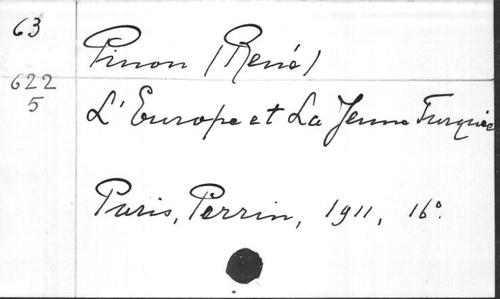 63
Pinon (René)
622
5
L'Europe et La Jeune Turquie
Paris, Perrin, 1911, 16°.